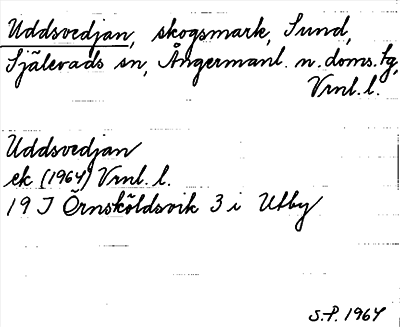 Uddsvedjan, skogsmark, Sund,
Själevads sn, Ångermanl. n. doms. tg,
Vrnl. l.
Uddsvedjan
ek (1964) Vrnl. l.
19 I Örnsköldsvik 3 i Utby
S.P. 1964